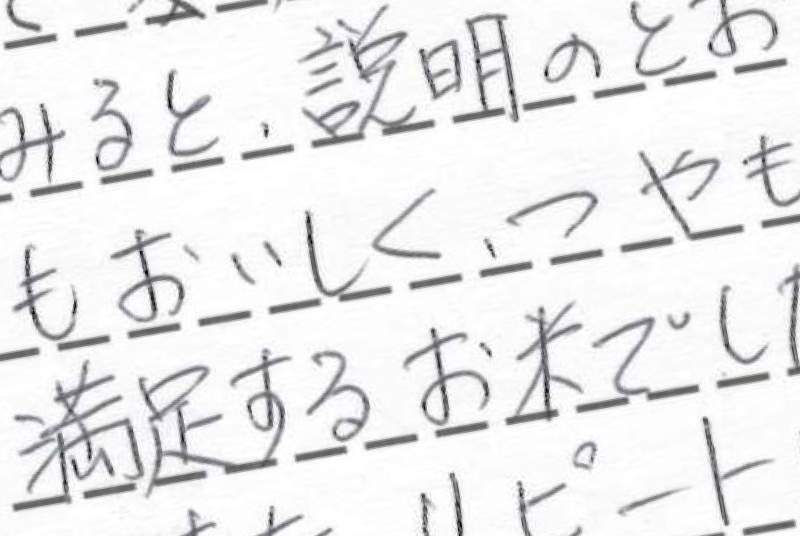 みると、説明のとお
もおいしく、つやも
満足するお米でした
リピート